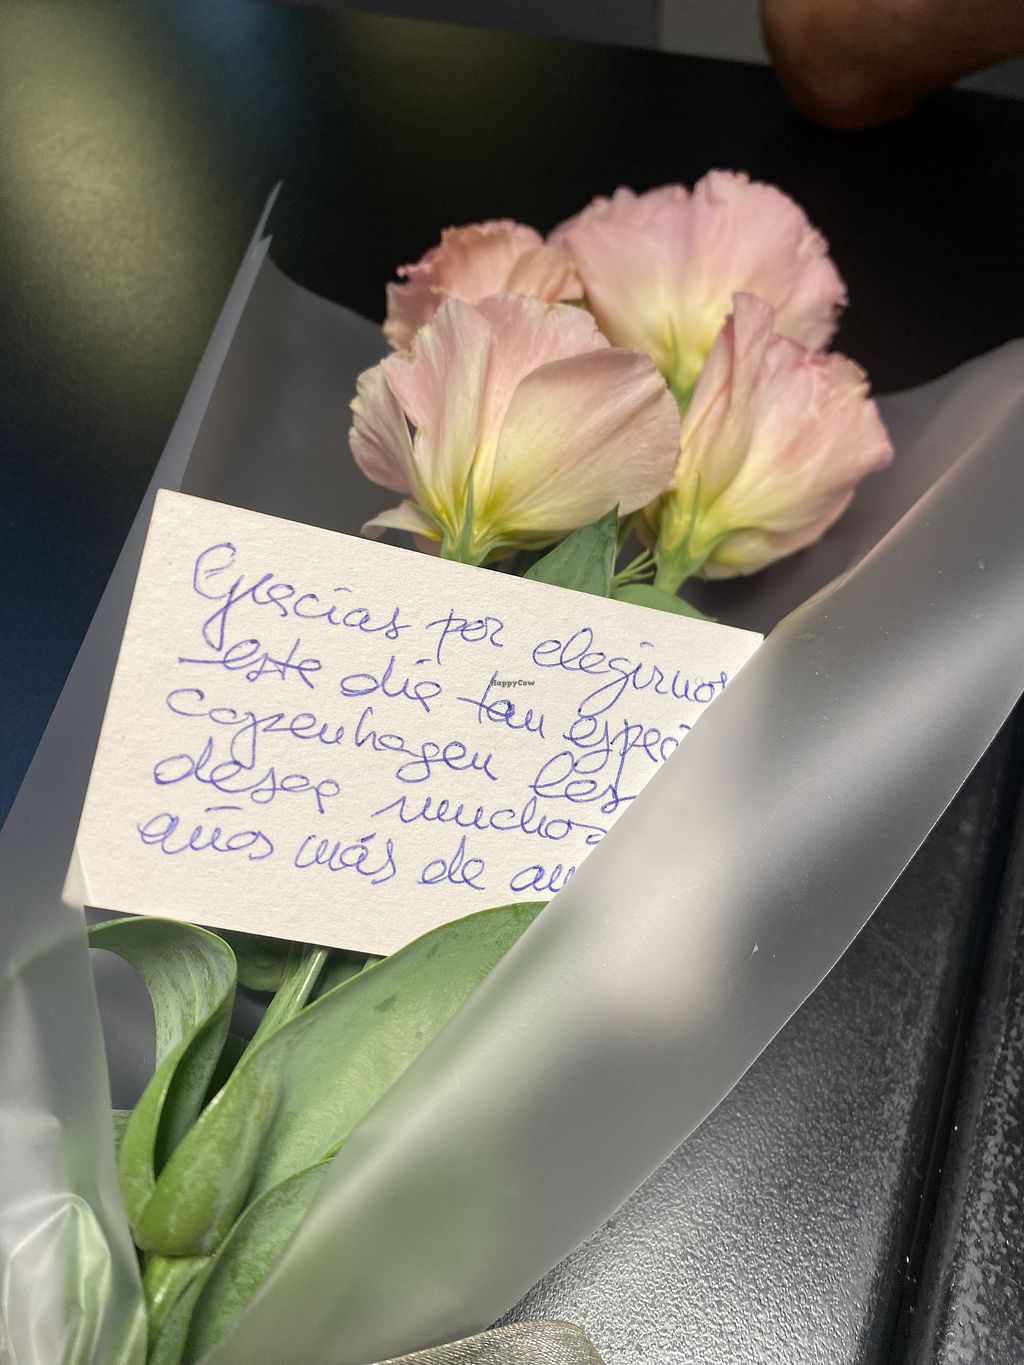 Gracias por elegirnos
este día tan especi
Copenhagen les
desea muchos
años más de am
HappyCow